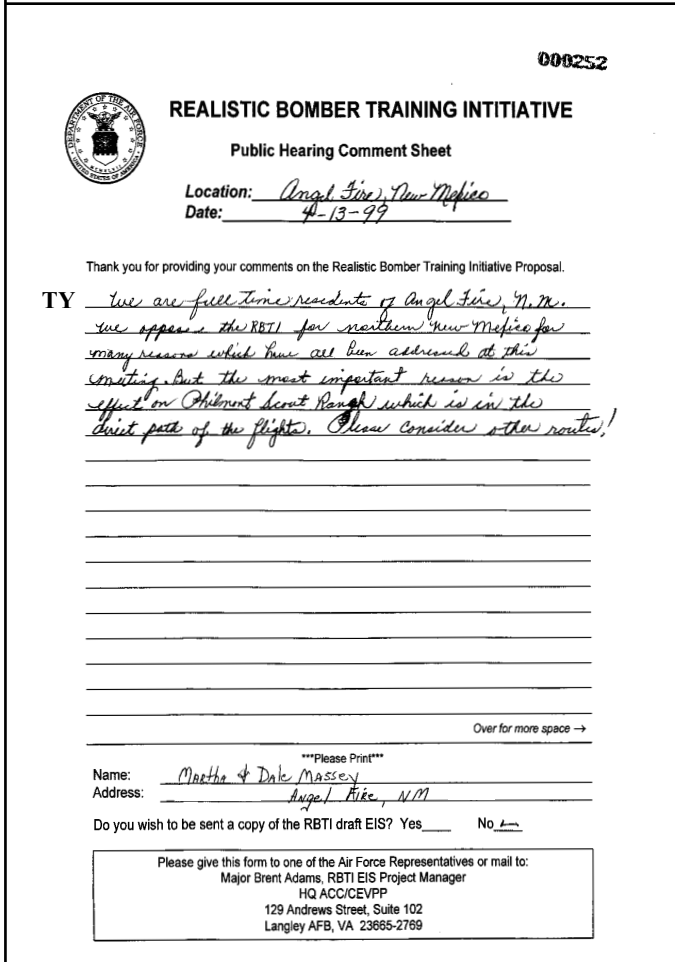 000252
DEPARTMENT OF THE AIR FORCE
UNITED STATES OF AMERICA
REALISTIC BOMBER TRAINING INTITIATIVE
Public Hearing Comment Sheet
Location: Angel Fire, New Mexico
Date: 4-13-99
Thank you for providing your comments on the Realistic Bomber Training Initiative Proposal.
TY We are full time residents of Angel Fire, N.M.
We oppose the RBTI for northern New Mexico for
many reasons which have all been addressed at this
meeting. But the most important reason is the
effect on Philmont Scout Ranch which is in the
direct path of the flights. Please consider other routes!
Over for more space →
***Please Print***
Name: Martha & Dale Massey
Address: Angel Fire, NM
Do you wish to be sent a copy of the RBTI draft EIS? Yes____ No ____
Please give this form to one of the Air Force Representatives or mail to:
Major Brent Adams, RBTI EIS Project Manager
HQ ACC/CEVPP
129 Andrews Street, Suite 102
Langley AFB, VA 23665-2769